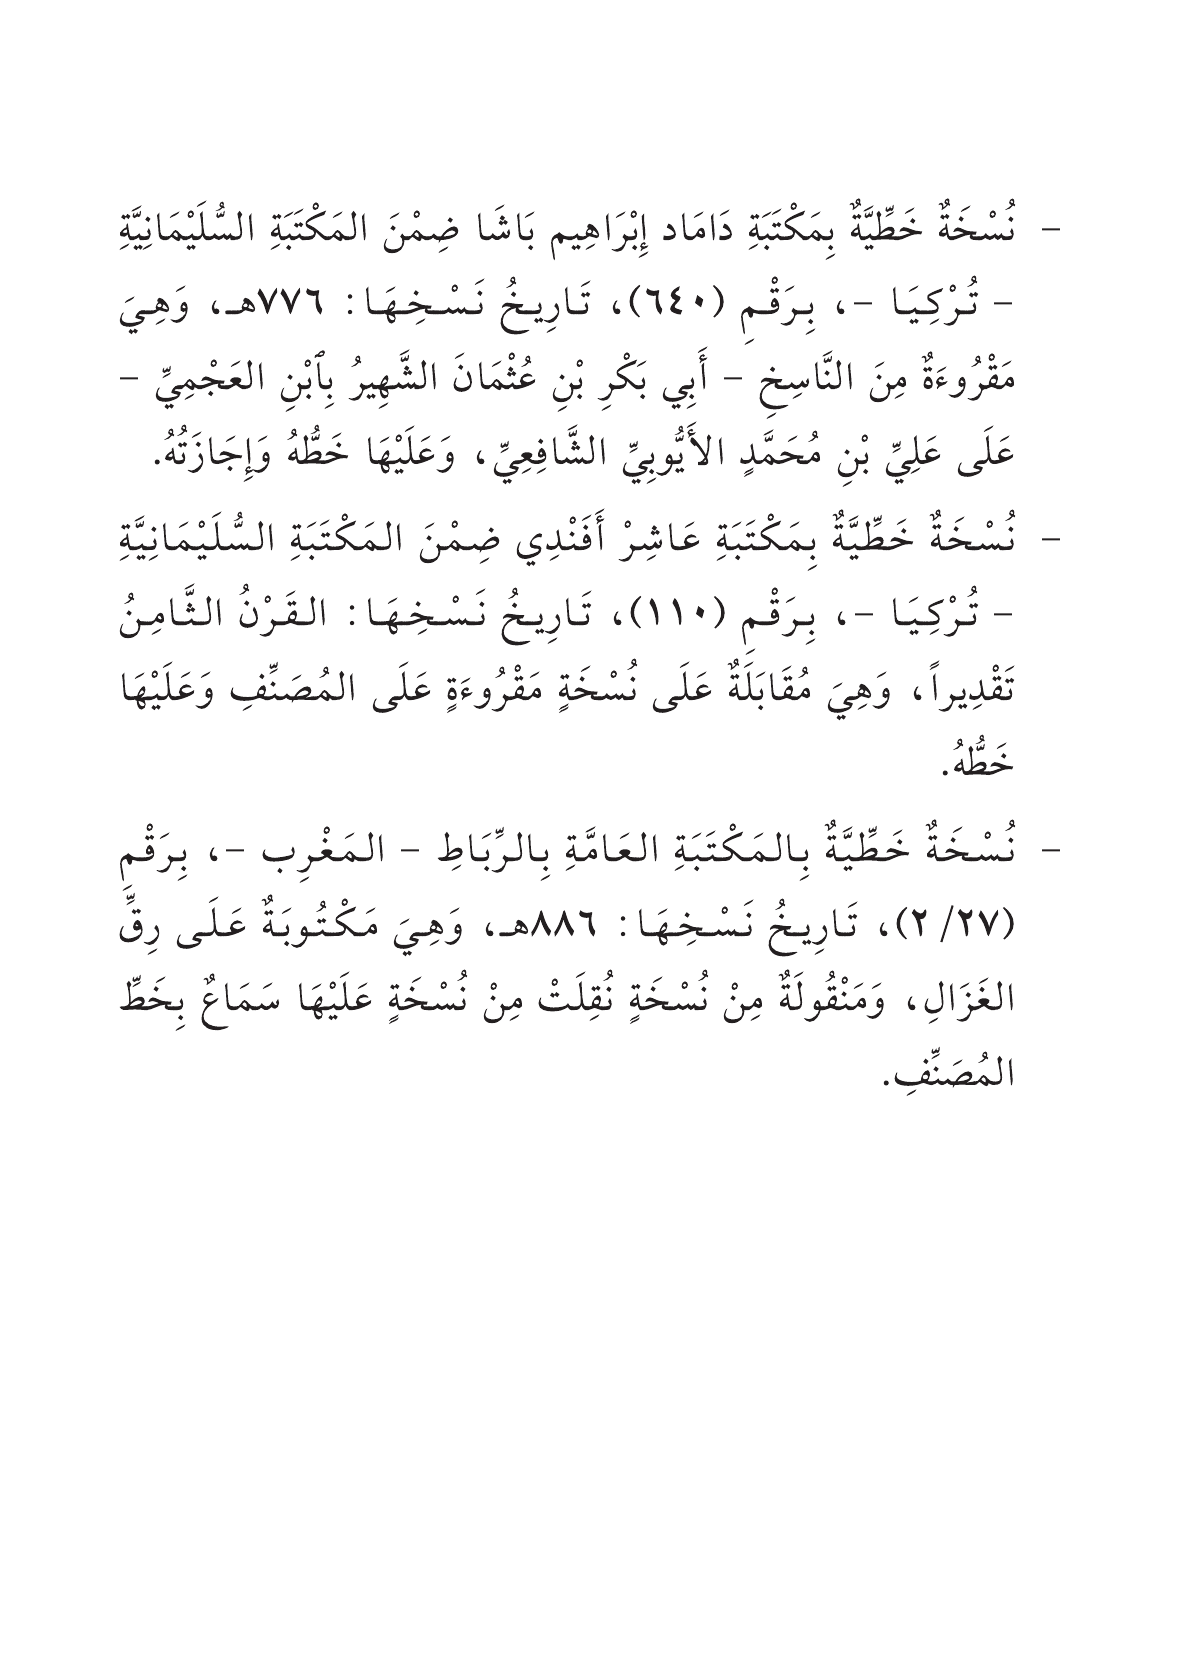 - نُسْخَةٌ خَطِّيَّةٌ بِمَكْتَبَةِ دَامَاد إِبْرَاهِيم بَاشَا ضِمْنَ المَكْتَبَةِ السُّلَيْمَانِيَّةِ
- تُرْكِيَا -، بِرَقْمِ (٦٤٠)، تَارِيخُ نَسْخِهَا: ٧٧٦هـ، وَهِيَ
مَقْرُوءَةٌ مِنَ النَّاسِخِ - أَبِي بَكْرِ بْنِ عُثْمَانَ الشَّهِيرُ بِٱبْنِ العَجْمِيِّ -
عَلَى عَلِيِّ بْنِ مُحَمَّدٍ الأَيُّوبِيِّ الشَّافِعِيِّ، وَعَلَيْهَا خَطُّهُ وَإِجَازَتُهُ.
- نُسْخَةٌ خَطِّيَّةٌ بِمَكْتَبَةِ عَاشِرْ أَفَنْدِي ضِمْنَ المَكْتَبَةِ السُّلَيْمَانِيَّةِ
- تُرْكِيَا -، بِرَقْمِ (١١٠)، تَارِيخُ نَسْخِهَا: القَرْنُ الثَّامِنُ
تَقْدِيراً، وَهِيَ مُقَابَلَةٌ عَلَى نُسْخَةٍ مَقْرُوءَةٍ عَلَى المُصَنِّفِ وَعَلَيْهَا
خَطُّهُ.
- نُسْخَةٌ خَطِّيَّةٌ بِالمَكْتَبَةِ العَامَّةِ بِالرِّبَاطِ - المَغْرِب -، بِرَقْمِ
(٢/٢٧)، تَارِيخُ نَسْخِهَا: ٨٨٦هـ، وَهِيَ مَكْتُوبَةٌ عَلَى رِقِّ
الغَزَالِ، وَمَنْقُولَةٌ مِنْ نُسْخَةٍ نُقِلَتْ مِنْ نُسْخَةٍ عَلَيْهَا سَمَاعٌ بِخَطِّ
المُصَنِّفِ.